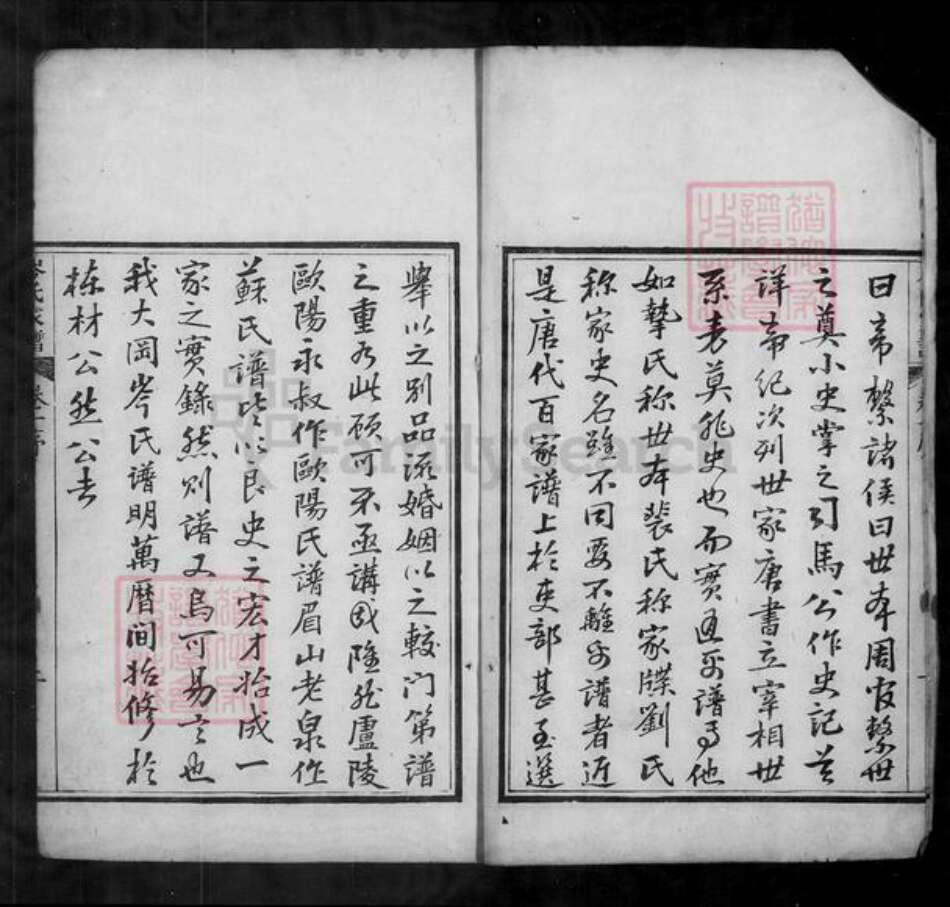 曰帝繫諸侯曰世本周官繫世
之奠小史掌之司馬公作史記首
詳帝紀次列世家唐書立宰相世
系表莫非史也而實通乎譜焉他
如摯氏称世本裴氏称家牒劉氏
称家史名雖不同要不離乎譜者近
是唐代百家譜上於吏部甚至選
舉以之別品流婚姻以之較門第譜
之重如此顧可不亟講哉雖然盧陵
歐陽永叔作歐陽氏譜眉山老泉作
蘇氏譜皆以良史之宏才始成一
家之實錄然則譜又烏可易言也
我大岡岑氏譜明萬曆间始修於
棟材公然公去
岑氏家譜
卷一序
FamilySearch